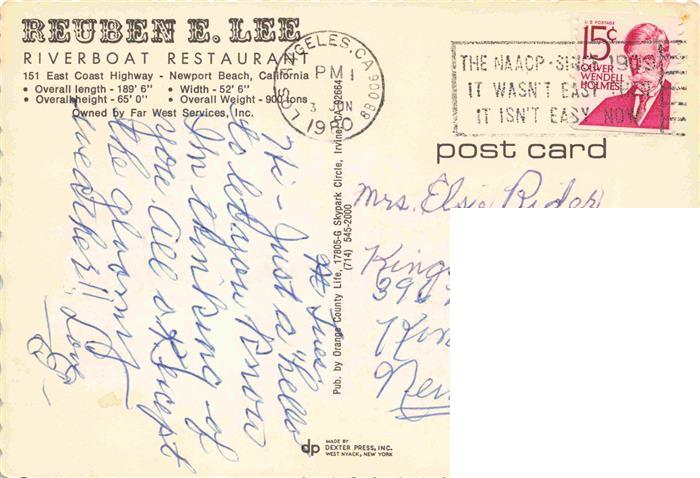 REUBEN E. LEE
RIVERBOAT RESTAURANT
151 East Coast Highway - Newport Beach, California
• Overall length - 189' 6" • Width - 52' 6"
• Overall height - 65' 0" • Overall Weight - 900 tons
Owned by Far West Services, Inc.
LOS ANGELES, CA 90068
PM
3 JUN
1980
THE NAACP-SINCE 1909
IT WASN'T EASY
IT ISN'T EASY NOW
U.S. POSTAGE
15¢
OLIVER
WENDELL
HOLMES
post card
Tues
Hi - Just a "hello
to let you know
I'm thinking of
you. All ok except
the gloomy
weather!! Love
Pub. by Orange County Life, 17805-G Skypark Circle, Irvine, CA 92664
(714) 545-2000
Mrs. Elsie Rider
King
393
Kin
New
dp
MADE BY
DEXTER PRESS, INC.
WEST NYACK, NEW YORK